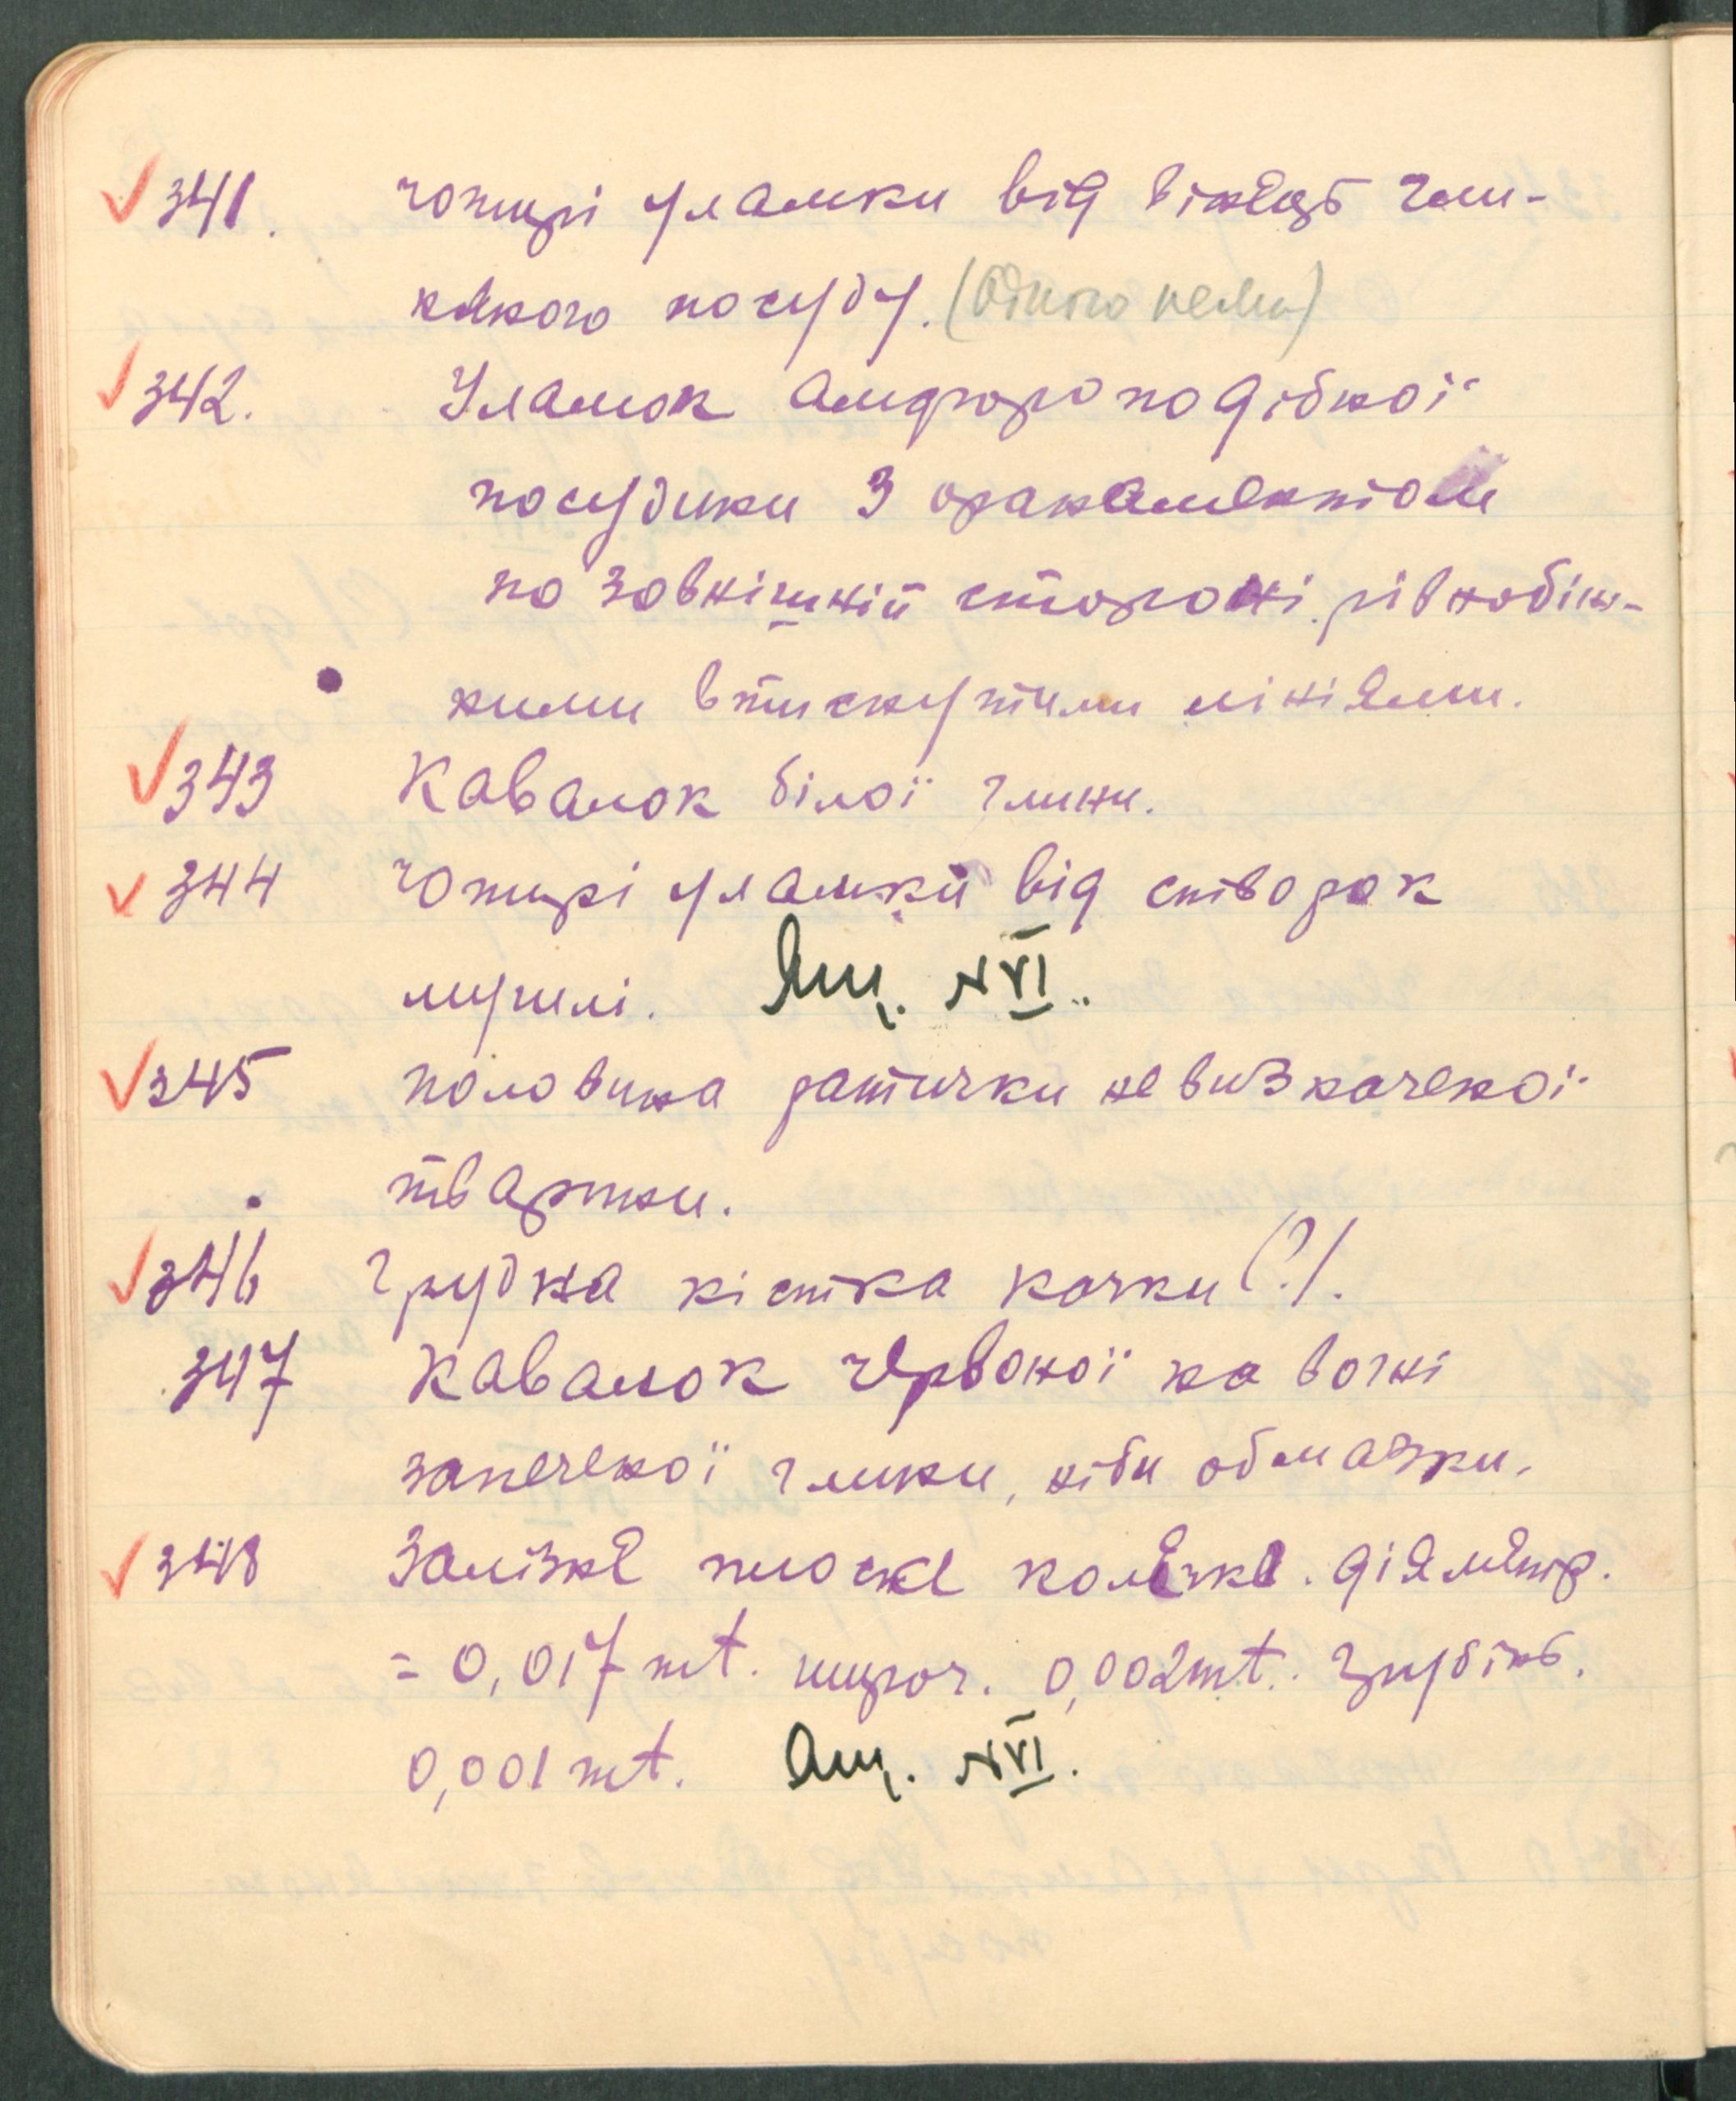 ✓ 341. чотирі уламки від вінець гли-
няного посуду. (Одного нема)
✓ 342. Уламок амфороподібної
посудини з орнаментом
по зовнішній стороні рівнобіж-
ними втиснутими лініями.
✓ 343 Кавалок білої глини.
✓ 344 чотирі уламки від створок
мушлі. Ящ. №VI.
✓ 345 половина ратички невизначеної
тварини.
✓ 346 Грудна кістка качки (?).
347 Кавалок червоної на вогні
запеченої глини, ніби обмазки.
✓ 348 Залізне плоске колечко. діяметр.
= 0,017 mt. широч. 0,002 mt. Грубінь.
0,001 mt. Ящ. №VI.